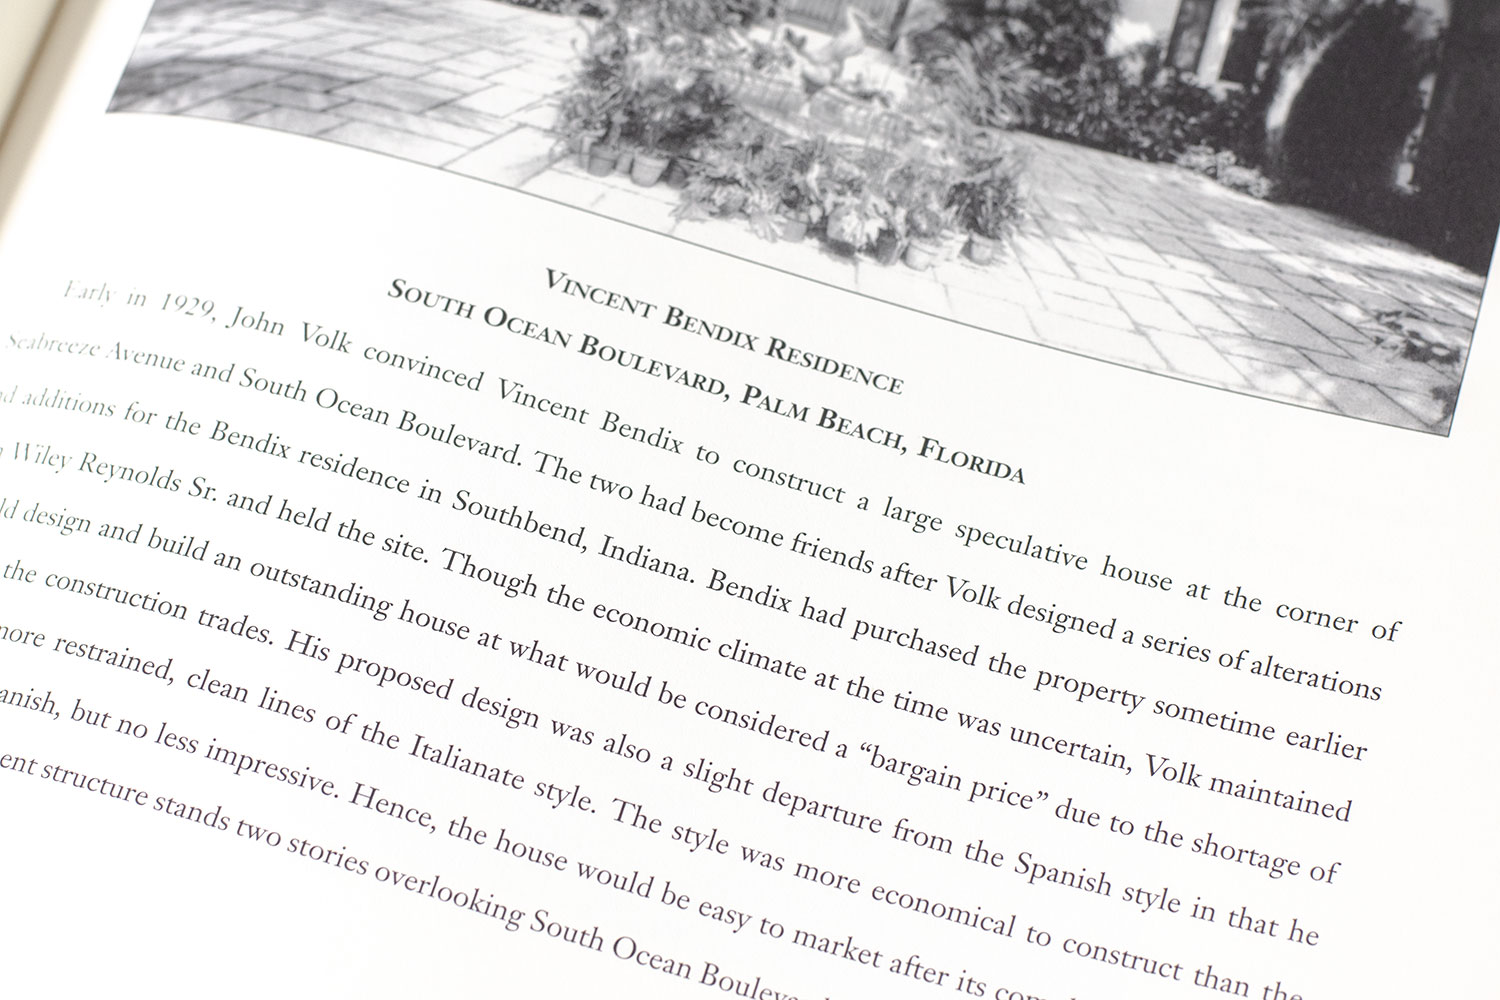 VINCENT BENDIX RESIDENCE
SOUTH OCEAN BOULEVARD, PALM BEACH, FLORIDA
Early in 1929, John Volk convinced Vincent Bendix to construct a large speculative house at the corner of
Seabreeze Avenue and South Ocean Boulevard. The two had become friends after Volk designed a series of alterations
additions for the Bendix residence in Southbend, Indiana. Bendix had purchased the property sometime earlier
Wiley Reynolds Sr. and held the site. Though the economic climate at the time was uncertain, Volk maintained
design and build an outstanding house at what would be considered a “bargain price” due to the shortage of
the construction trades. His proposed design was also a slight departure from the Spanish style in that he
more restrained, clean lines of the Italianate style. The style was more economical to construct than the
anish, but no less impressive. Hence, the house would be easy to market after its
ent structure stands two stories overlooking South Ocean